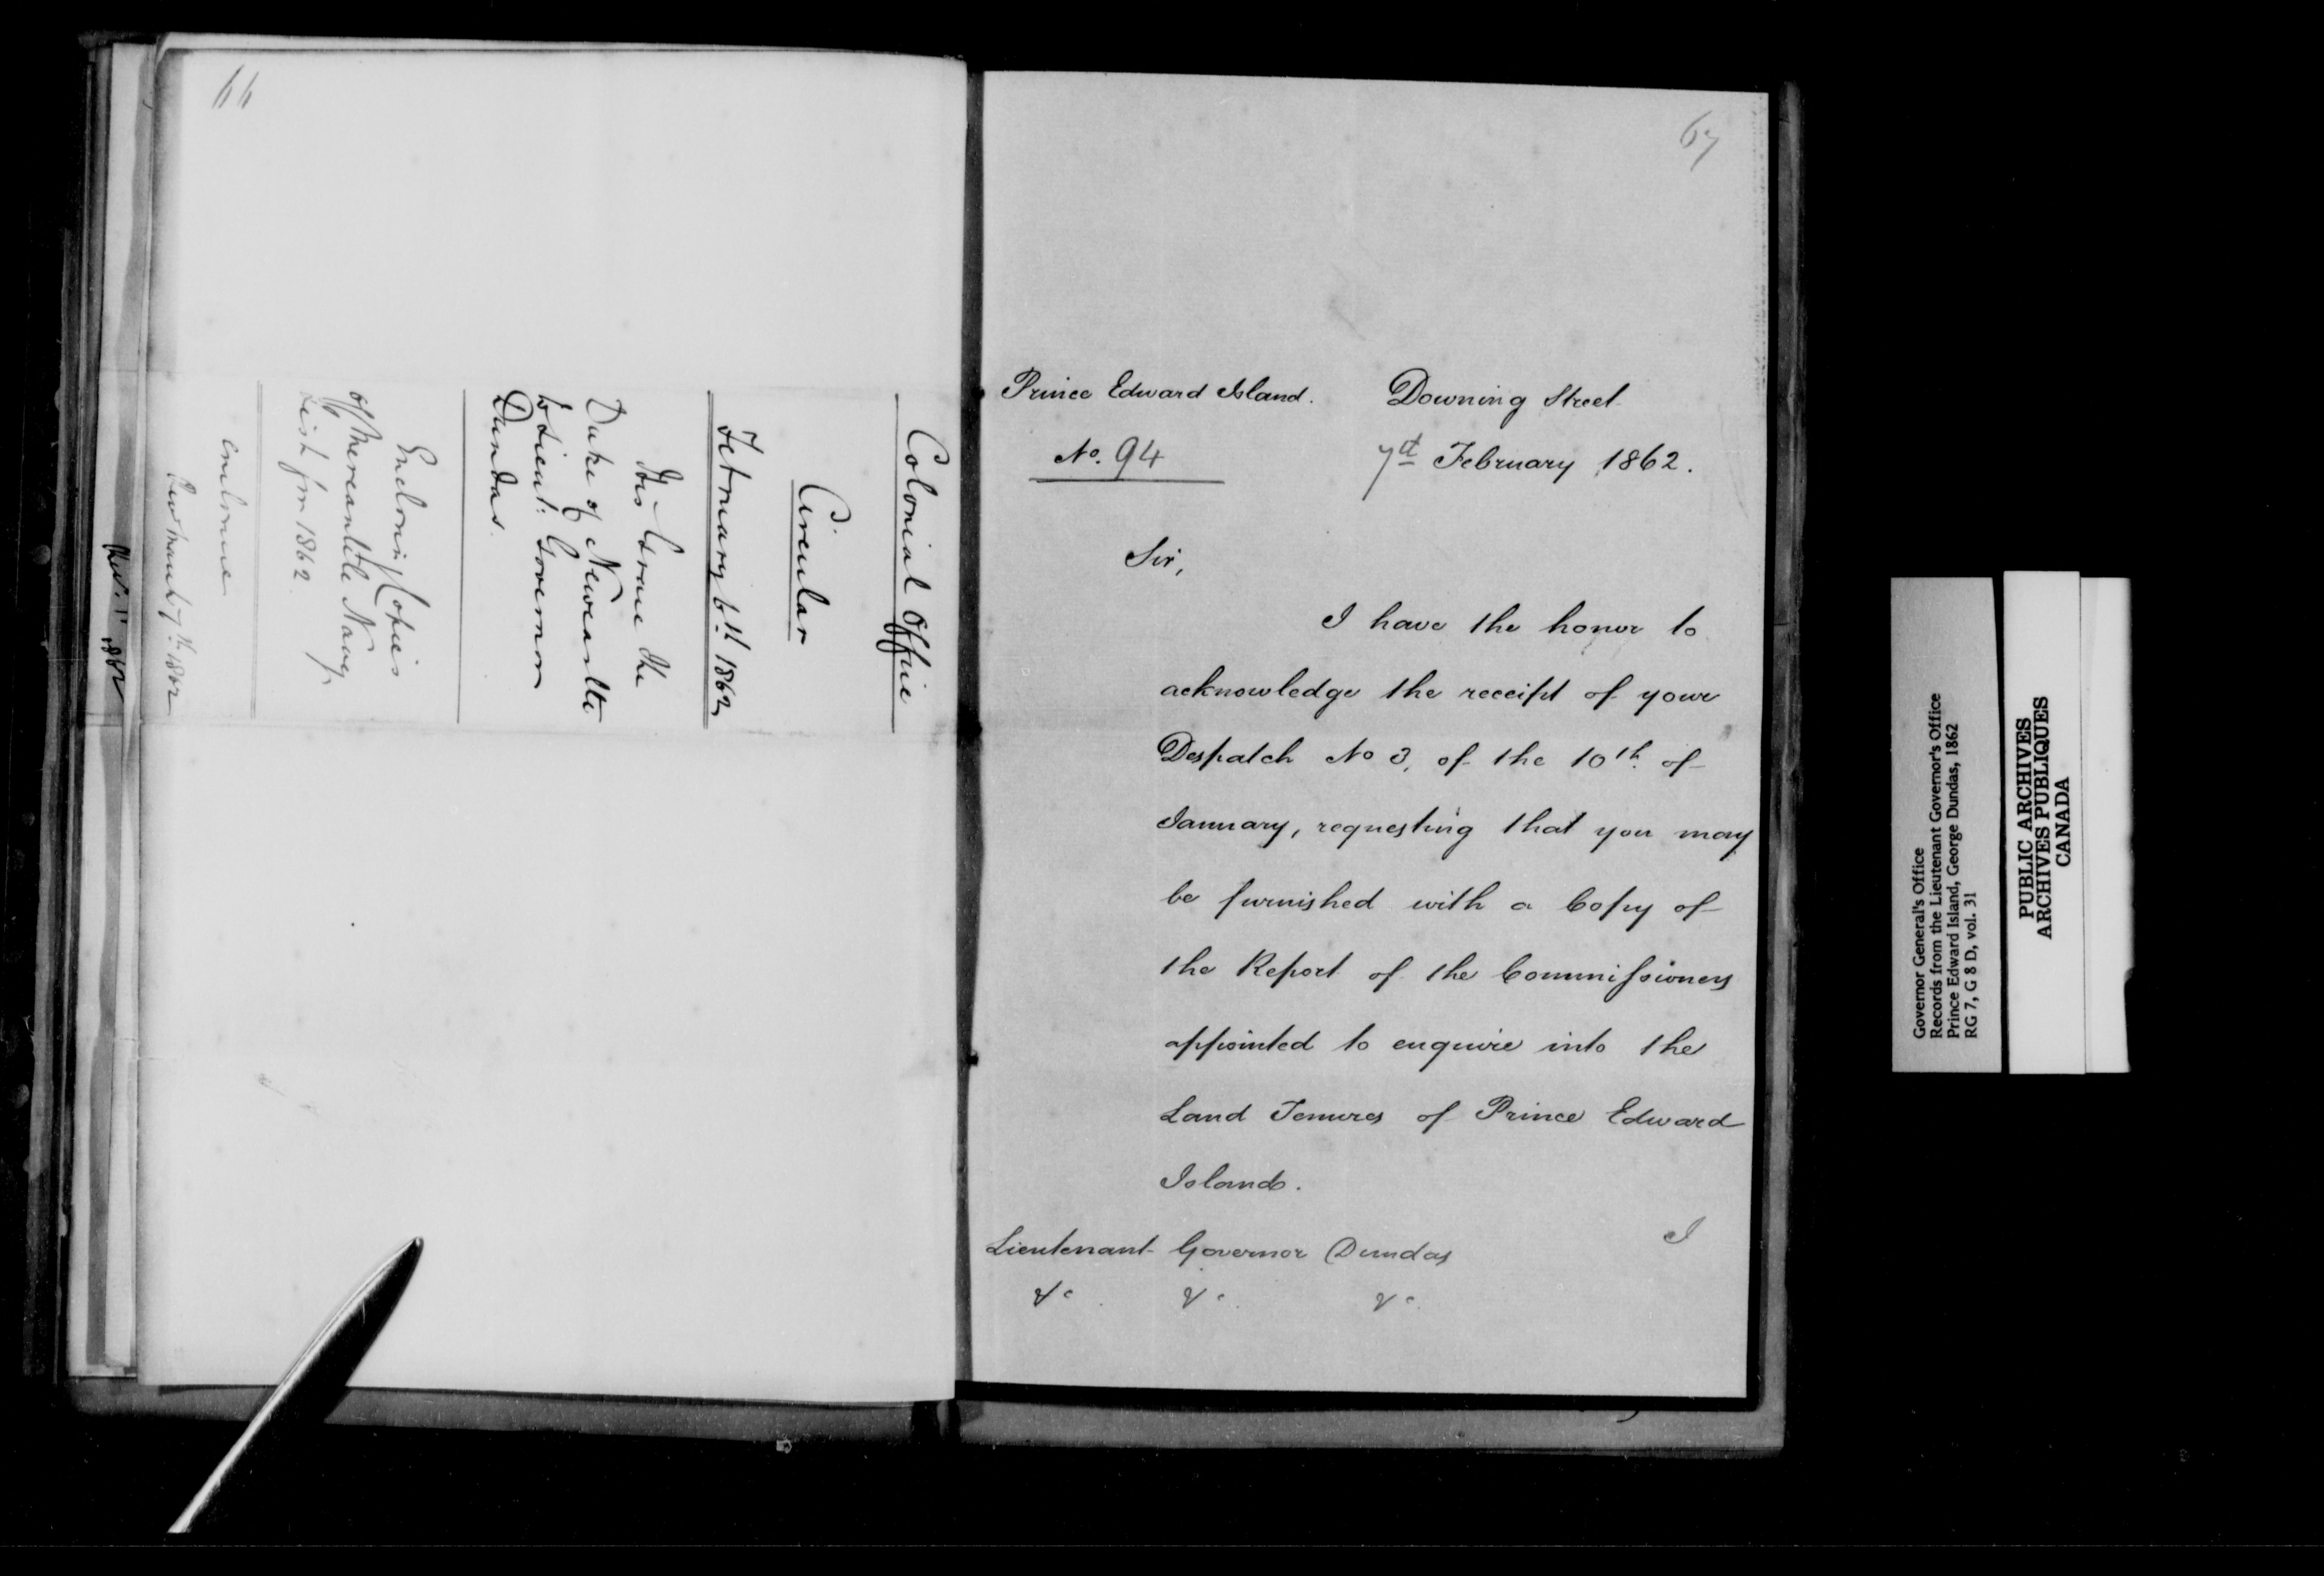 66
Colonial Office
Circular
February 6th 1862
His Grace the
Duke of Newcastle
to Lieut: Governor
Dundas.
Enclosing Copies
of Mercantile Navy
List for 1862
1862
67
Prince Edward Island. Downing Street
No. 94 7th February 1862.
Sir,
I have the honor to
acknowledge the receipt of your
Despatch No 3, of the 10th. of
January, requesting that you may
be furnished with a Copy of
the Report of the Commissioners
appointed to enquire into the
Land Tenures of Prince Edward
Island.
I
Lieutenant Governor Dundas
&c. &c. &c.
Governor General's Office
Records from the Lieutenant Governor's Office
Prince Edward Island, George Dundas, 1862
RG 7, G 8 D, vol. 31
PUBLIC ARCHIVES
ARCHIVES PUBLIQUES
CANADA